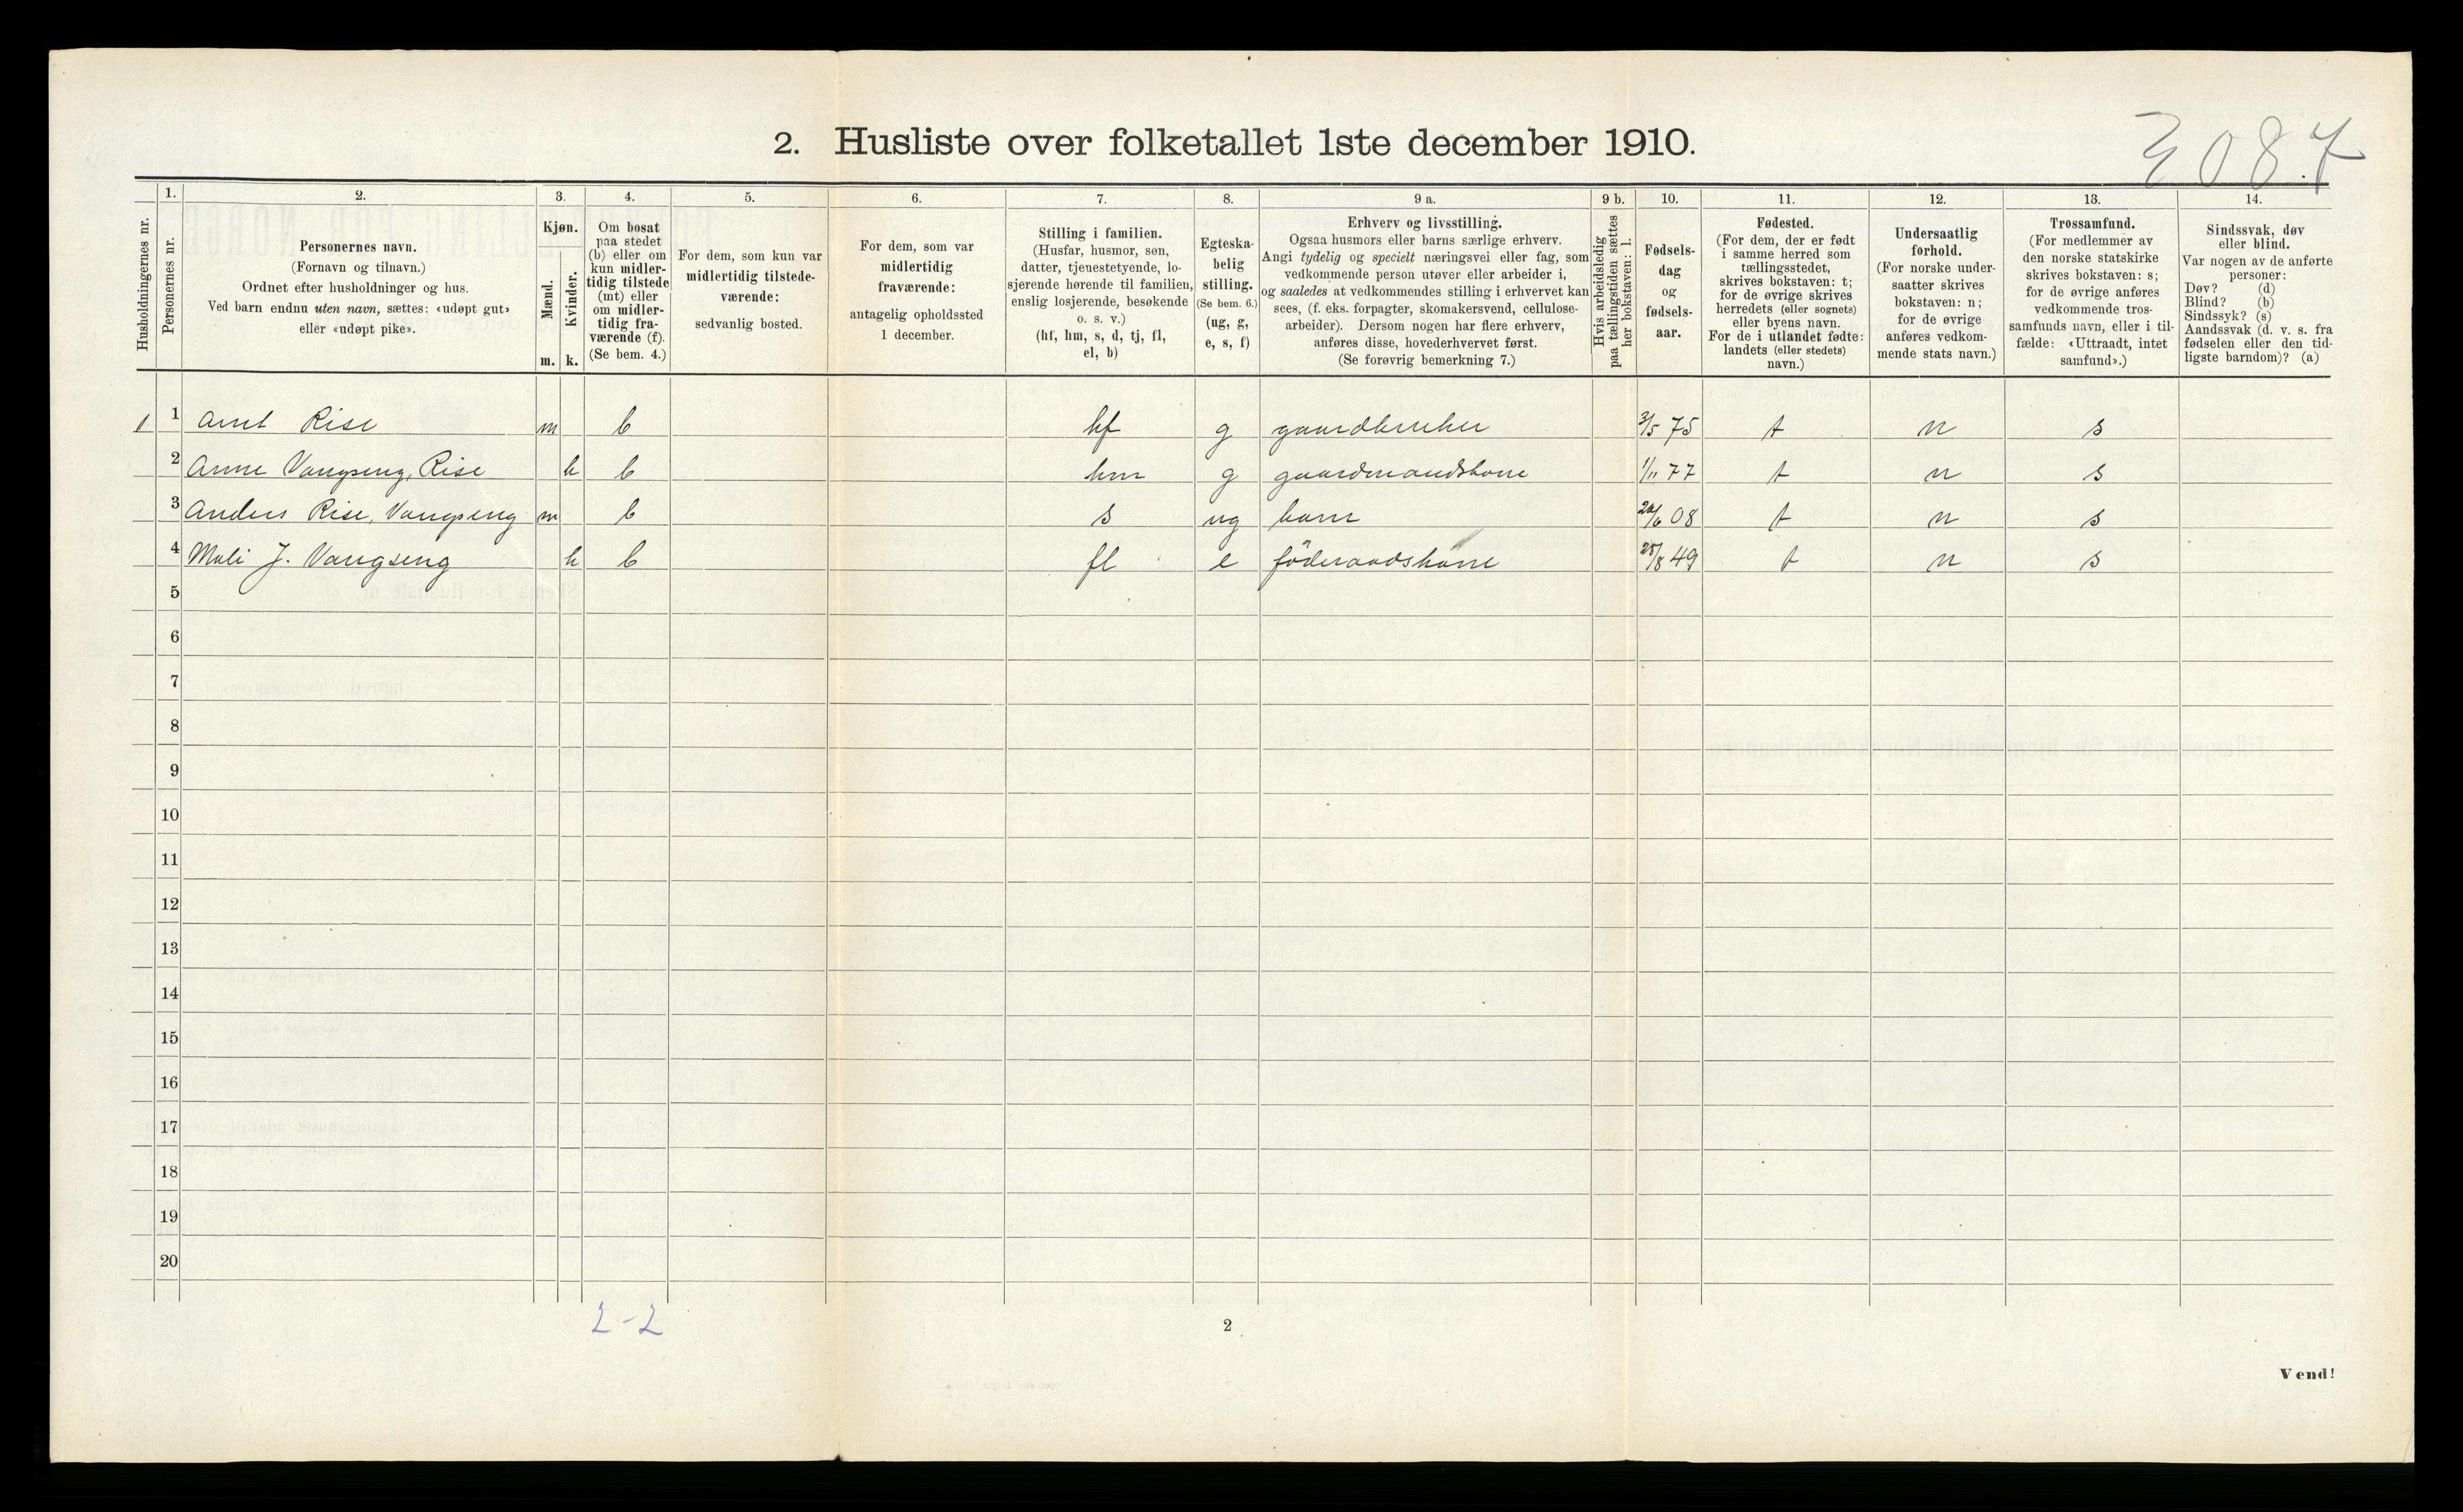 3087
2. Husliste over folketallet 1ste december 1910.
Husholdningernes nr.
1.
Personernes nr.
2.
Personernes navn.
(Fornavn og tilnavn.)
Ordnet efter husholdninger og hus.
Ved barn endnu uten navn, sættes: «udøpt gut»
eller «udøpt pike».
3.
Kjøn.
Mænd.
Kvinder.
m. k.
4.
Om bosat
paa stedet
(b) eller om
kun midler-
tidig tilstede
(mt) eller
om midler-
tidig fra-
værende (f).
(Se bem. 4.)
5.
For dem, som kun var
midlertidig tilstede-
værende:
sedvanlig bosted.
6.
For dem, som var
midlertidig
fraværende:
antagelig opholdssted
1 december.
7.
Stilling i familien.
(Husfar, husmor, søn,
datter, tjenestetyende, lo-
sjerende hørende til familien,
enslig losjerende, besøkende
o. s. v.)
(hf, hm, s, d, tj, fl,
el, b)
8.
Egteska-
belig
stilling.
(Se bem. 6.)
(ug, g,
e, s, f)
9 a.
Erhverv og livsstilling.
Ogsaa husmors eller barns særlige erhverv.
Angi tydelig og specielt næringsvei eller fag, som
vedkommende person utøver eller arbeider i,
og saaledes at vedkommendes stilling i erhvervet kan
sees, (f. eks. forpagter, skomakersvend, cellulose-
arbeider). Dersom nogen har flere erhverv,
anføres disse, hovederhvervet først.
(Se forøvrig bemerkning 7.)
9 b.
Hvis arbeidsledig
paa tællingstiden sættes
her bokstaven: l.
10.
Fødsels-
dag
og
fødsels-
aar.
11.
Fødested.
(For dem, der er født
i samme herred som
tællingsstedet,
skrives bokstaven: t;
for de øvrige skrives
herredets (eller sognets)
eller byens navn.
For de i utlandet fødte:
landets (eller stedets)
navn.)
12.
Undersaatlig
forhold.
(For norske under-
saatter skrives
bokstaven: n;
for de øvrige
anføres vedkom-
mende stats navn.)
13.
Trossamfund.
(For medlemmer av
den norske statskirke
skrives bokstaven: s;
for de øvrige anføres
vedkommende tros-
samfunds navn, eller i til-
fælde: «Uttraadt, intet
samfund».)
14.
Sindssvak, døv
eller blind.
Var nogen av de anførte
personer:
Døv? (d)
Blind? (b)
Sindssyk? (s)
Aandssvak (d. v. s. fra
fødselen eller den tid-
ligste barndom)? (a)
1 1 Arnt Rise m b hf g gaardbruker 3/5 75 t n s
2 Anne Vangseng, Rise k b hm g gaardmandskone 1/11 77 t n s
3 Anders Rise, Vangseng m b s ug barn 20/6 08 t n s
4 Mali J. Vangseng k b fl e föderaadskone 25/8 49 t n s
5
6
7
8
9
10
11
12
13
14
15
16
17
18
19
20
2-2
2
Vend!